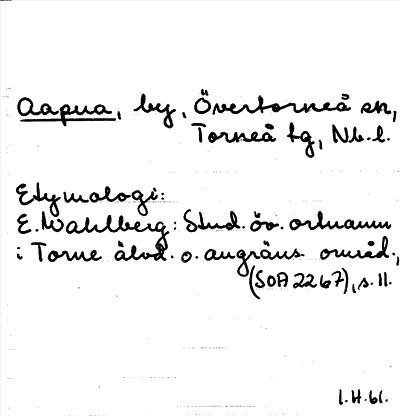 Aapua, by, Övertorneå sn,
Torneå tg, Nb.l.
Etymologi:
E. Wahlberg: Stud. öv. ortnamn
i Torne älvd. o. angräns. områd.,
(SOA 2267), s. 11.
I.H. 61.